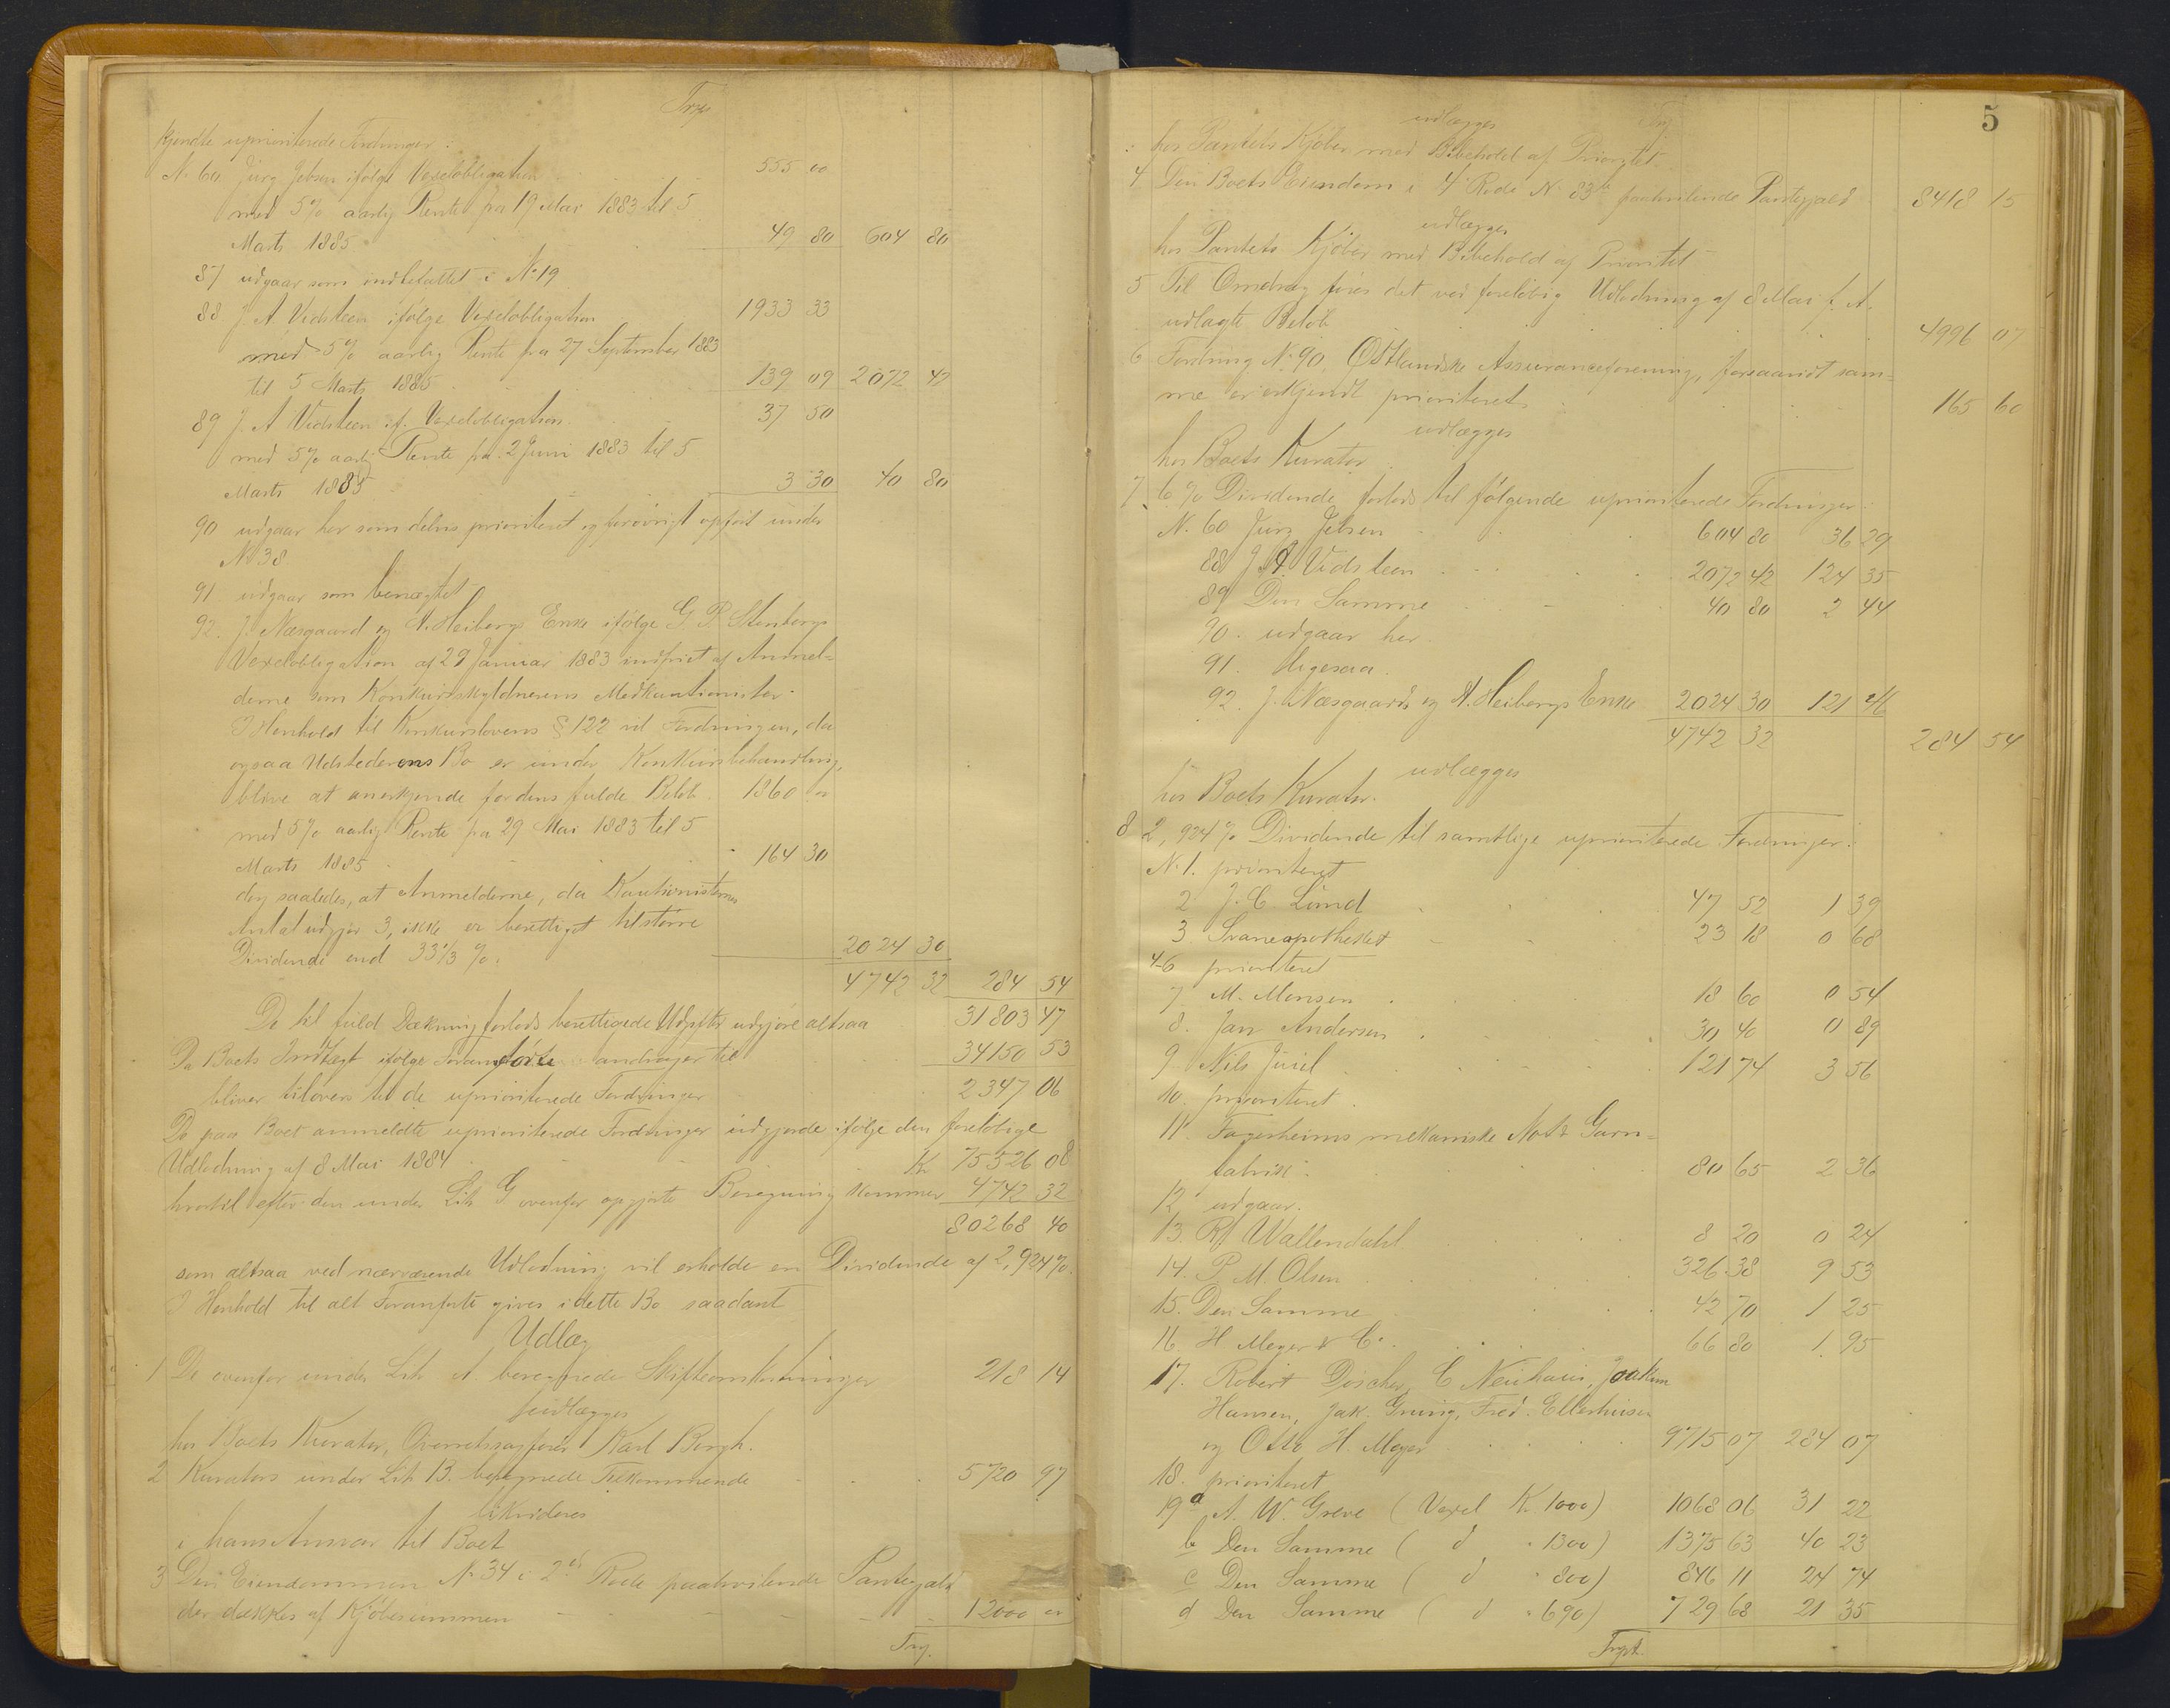 kjendte uprioriterede Fordringer:
No 60 Jürg Jebsen ifølge Vexelobligation 555 00
med 5% aarlig Rente fra 19 Mai 1883 til 5
Marts 1885 49 80 604 80
87 udgaar som indbefattet i No 19
88 J. A Vidsteen ifølge Vexelobligation 1933 33
med 5% aarlig Rente fra 27 September 1883
til 5 Marts 1885 139 09 2072 42
89 J. A Vidsteen if. Vexelobligation 37 50
med 5% aarlig Rente fra 2 Juni 1883 til 5
Marts 1885 3 30 40 80
90 udgaar her som delvis prioriteret og forøvrigt opført under
No 38
91 udgaar som benægtet
92. J. Næsgaard og A. Heibergs Enke ifølge G. P. Stenbergs
Vexelobligation af 29 Januar 1883 indfriet af Anmel-
derne som Konkursskyldnerens Medkautionister.
I Henhold til Konkurslovens § 122 vil Fordringen, da
ogsaa Udstederens Bo er under Konkursbehandling,
blive at anerkjende for dens fulde Beløb 1860 00
med 5% aarlig Rente fra 29 Mai 1883 til 5
Marts 1885 164 30
dog saaledes, at Anmelderne, da Kautionisternes
Antal udgjør 3, ikke er berettiget til større
Dividende end 33 1/3 %. 2024 30
4742 32 284 54
De til fuld Dækning forlods berettigede Udgifter udgjøre altsaa 31803 47
Da Boets Indtægt ifølge Foranførte andrager til 34150 53
bliver tilovers til de uprioriterede Fordringer 2347 06
De paa Boet anmeldte uprioriterede Fordringer udgjorde ifølge den foreløbige
Udlodning af 8 Mai 1884 Kr 75526 08
hvortil efter den under Lit G ovenfor opgjorte Beregning kommer 4742 32
80268 40
som altsaa ved nærværende Udlodning vil erholde en Dividende af 2,924%.
I Henhold til alt Foranførte gives i dette Bo saadant
Udlæg
1 De ovenfor under Lit A. beregnede Skifteomkostninger 218 14
udlægges
hos Boets Kurator, Overretssagfører Karl Bergh.
2 Kurators under Lit B. beregnede Tilkommende 5720 97
likvideres
i hans Ansvar til Boet
3 Den Eiendommen No 34 i 2den Rode paahvilende Pantegjæld
der dækkes af Kjøbesummen 12000 00
5
udlægges
hos Pantets Kjøber med Bibehold af Prioritet
4 Den Boets Eiendom i 4de Rode No 83 paahvilende Pantegjæld 8418 15
udlægges
hos Pantets Kjøber med Bibehold af Prioritet
5 Til Omdrag føres det ved foreløbig Udlodning af 8 Mai f. A.
udlagte Beløb 4996 07
6 Fordring No 90, Østlandske Assuranceforening, forsaavidt sam-
me er erkjendt prioriteret 165 60
udlægges
hos Boets Kurator
7 6% Dividende forlods til følgende uprioriterede Fordringer:
No. 60 Jürg Jebsen 604 80 36 29
88 J. A Vidsteen 2072 42 124 35
89 Den Samme 40 80 2 44
90. udgaar her.
91. ligesaa.
92. J. Næsgaard og A. Heibergs Enke 2024 30 121 46
4742 32 284 54
udlægges
hos Boets Kurator.
8 2,924% Dividende til samtlige uprioriterede Fordringer:
No 1. prioriteret
2 J. C. Lund 47 52 1 39
3. Svaneapotheket 23 18 0 68
4-6 prioriteret
7 M. Monsen 18 60 0 54
8. Jan Andersen 30 40 0 89
9 Nils Juul 121 74 3 56
10. prioriteret.
11. Fagerheims mekaniske Not & Garn-
fabrik. 80 65 2 36
12 udgaar.
13. Rf Wallendahl 8 20 0 24
14. P. M. Olsen 326 38 9 53
15. Den Samme 42 70 1 25
16 H Meyer & Co. 66 80 1 95
17. Robert Döscher, C Neuhaus, Joakim
Hansen, Jak. Gruing, Fred. Ellerhusen
og Otto H. Meyer 9715 07 284 07
18. prioriteret
19 a A. W. Greve (Vexel Kr. 1000) 1068 06 31 22
b Den Samme ( d " 1300) 1375 63 40 23
c Den Samme ( d " 800) 846 11 24 74
d Den Samme ( d " 690) 729 68 21 35